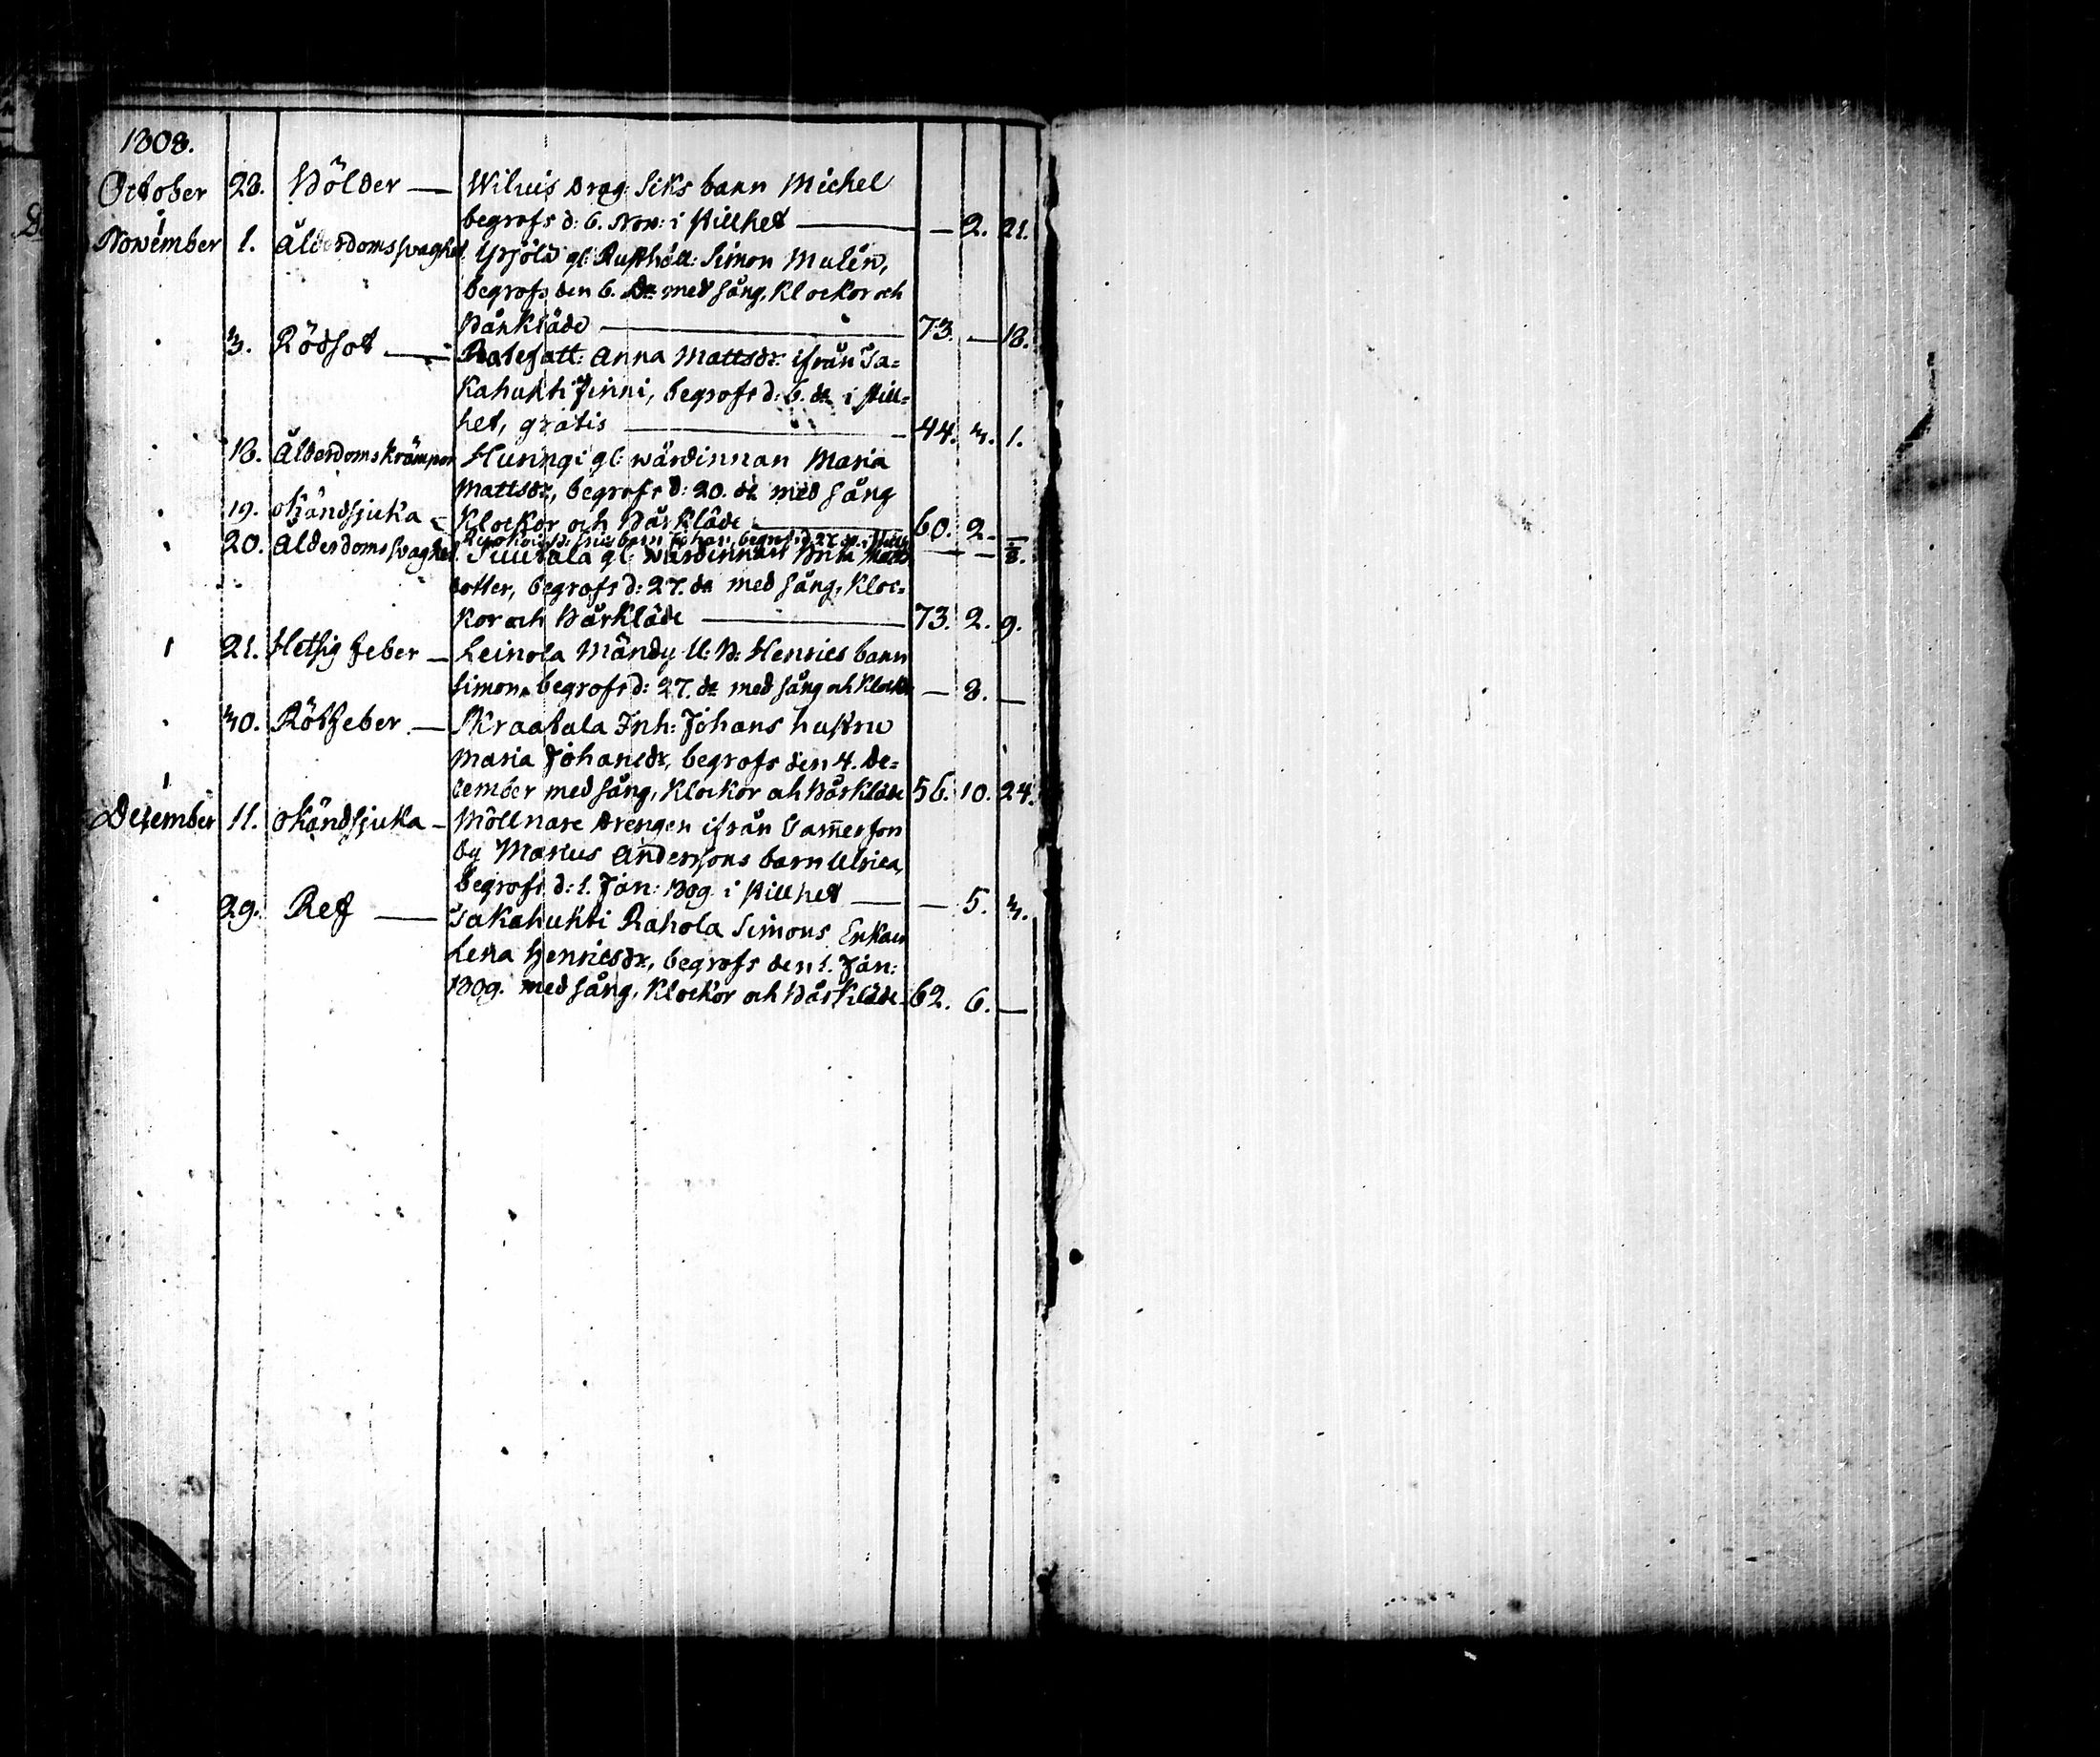 1808.
October 28. Bölder — Wiluis Drag: Siks barn Michel
begrofs d: 6. Nov: i stillhet — — 2. 21.
November 1. Ålderdomssvaghet Ypjölä gl: Rusthåll: Simon Malén,
begrofs den 6. dꝛ med sång, Klockor och
Bårkläde — 73. — 18.
3. Rödsot — Rotefatt: Anna Mattsdr: ifrån Sa=
kahukti Finni, begrofs d: 6. dꝛ i still=
het, gratis — 44. 3. 1.
18. Ålderdomskrämpor Huningi gl: wärdinnan Maria
Mattsdr, begrofs d: 20. dꝛ med sång
Klockor och Bårkläde — 60. 2. —
19. Okänd sjuka — barn Johan, begrofs d: 27. dꝛ i stillh — — 8.
20. Ålderdomssvaghet Suutala gl: wärdinnan Brita Matts
dotter, begrofs d: 27. dꝛ med sång, Kloc=
kor och Bårkläde — 73. 2. 9.
21. Hetsig feber — Leinola Mändy U: B: Henrics barn
Simon, begrofs d: 27. dꝛ med sång och Klock — 8. —
30. Rötfeber — Skraatala Inh: Johans hustru
Maria Johansdr, begrofs den 4. De=
cember med sång, Klockor och Bårkläde 56. 10. 24.
December 11. Okänd sjuka — Möllnare Drengen ifrån Tam̅erfors
by Marius Anderssons barn Ulrica,
begrofs d: 1. Jan: 1809. i stillhet — — 5. 3.
29. Ref — Sakahukti Rahola Simons Enkan
Lena Henricsdr, begrofs den 1. Jan:
1809. med sång, Klockor och Bårkläde 62. 6. —